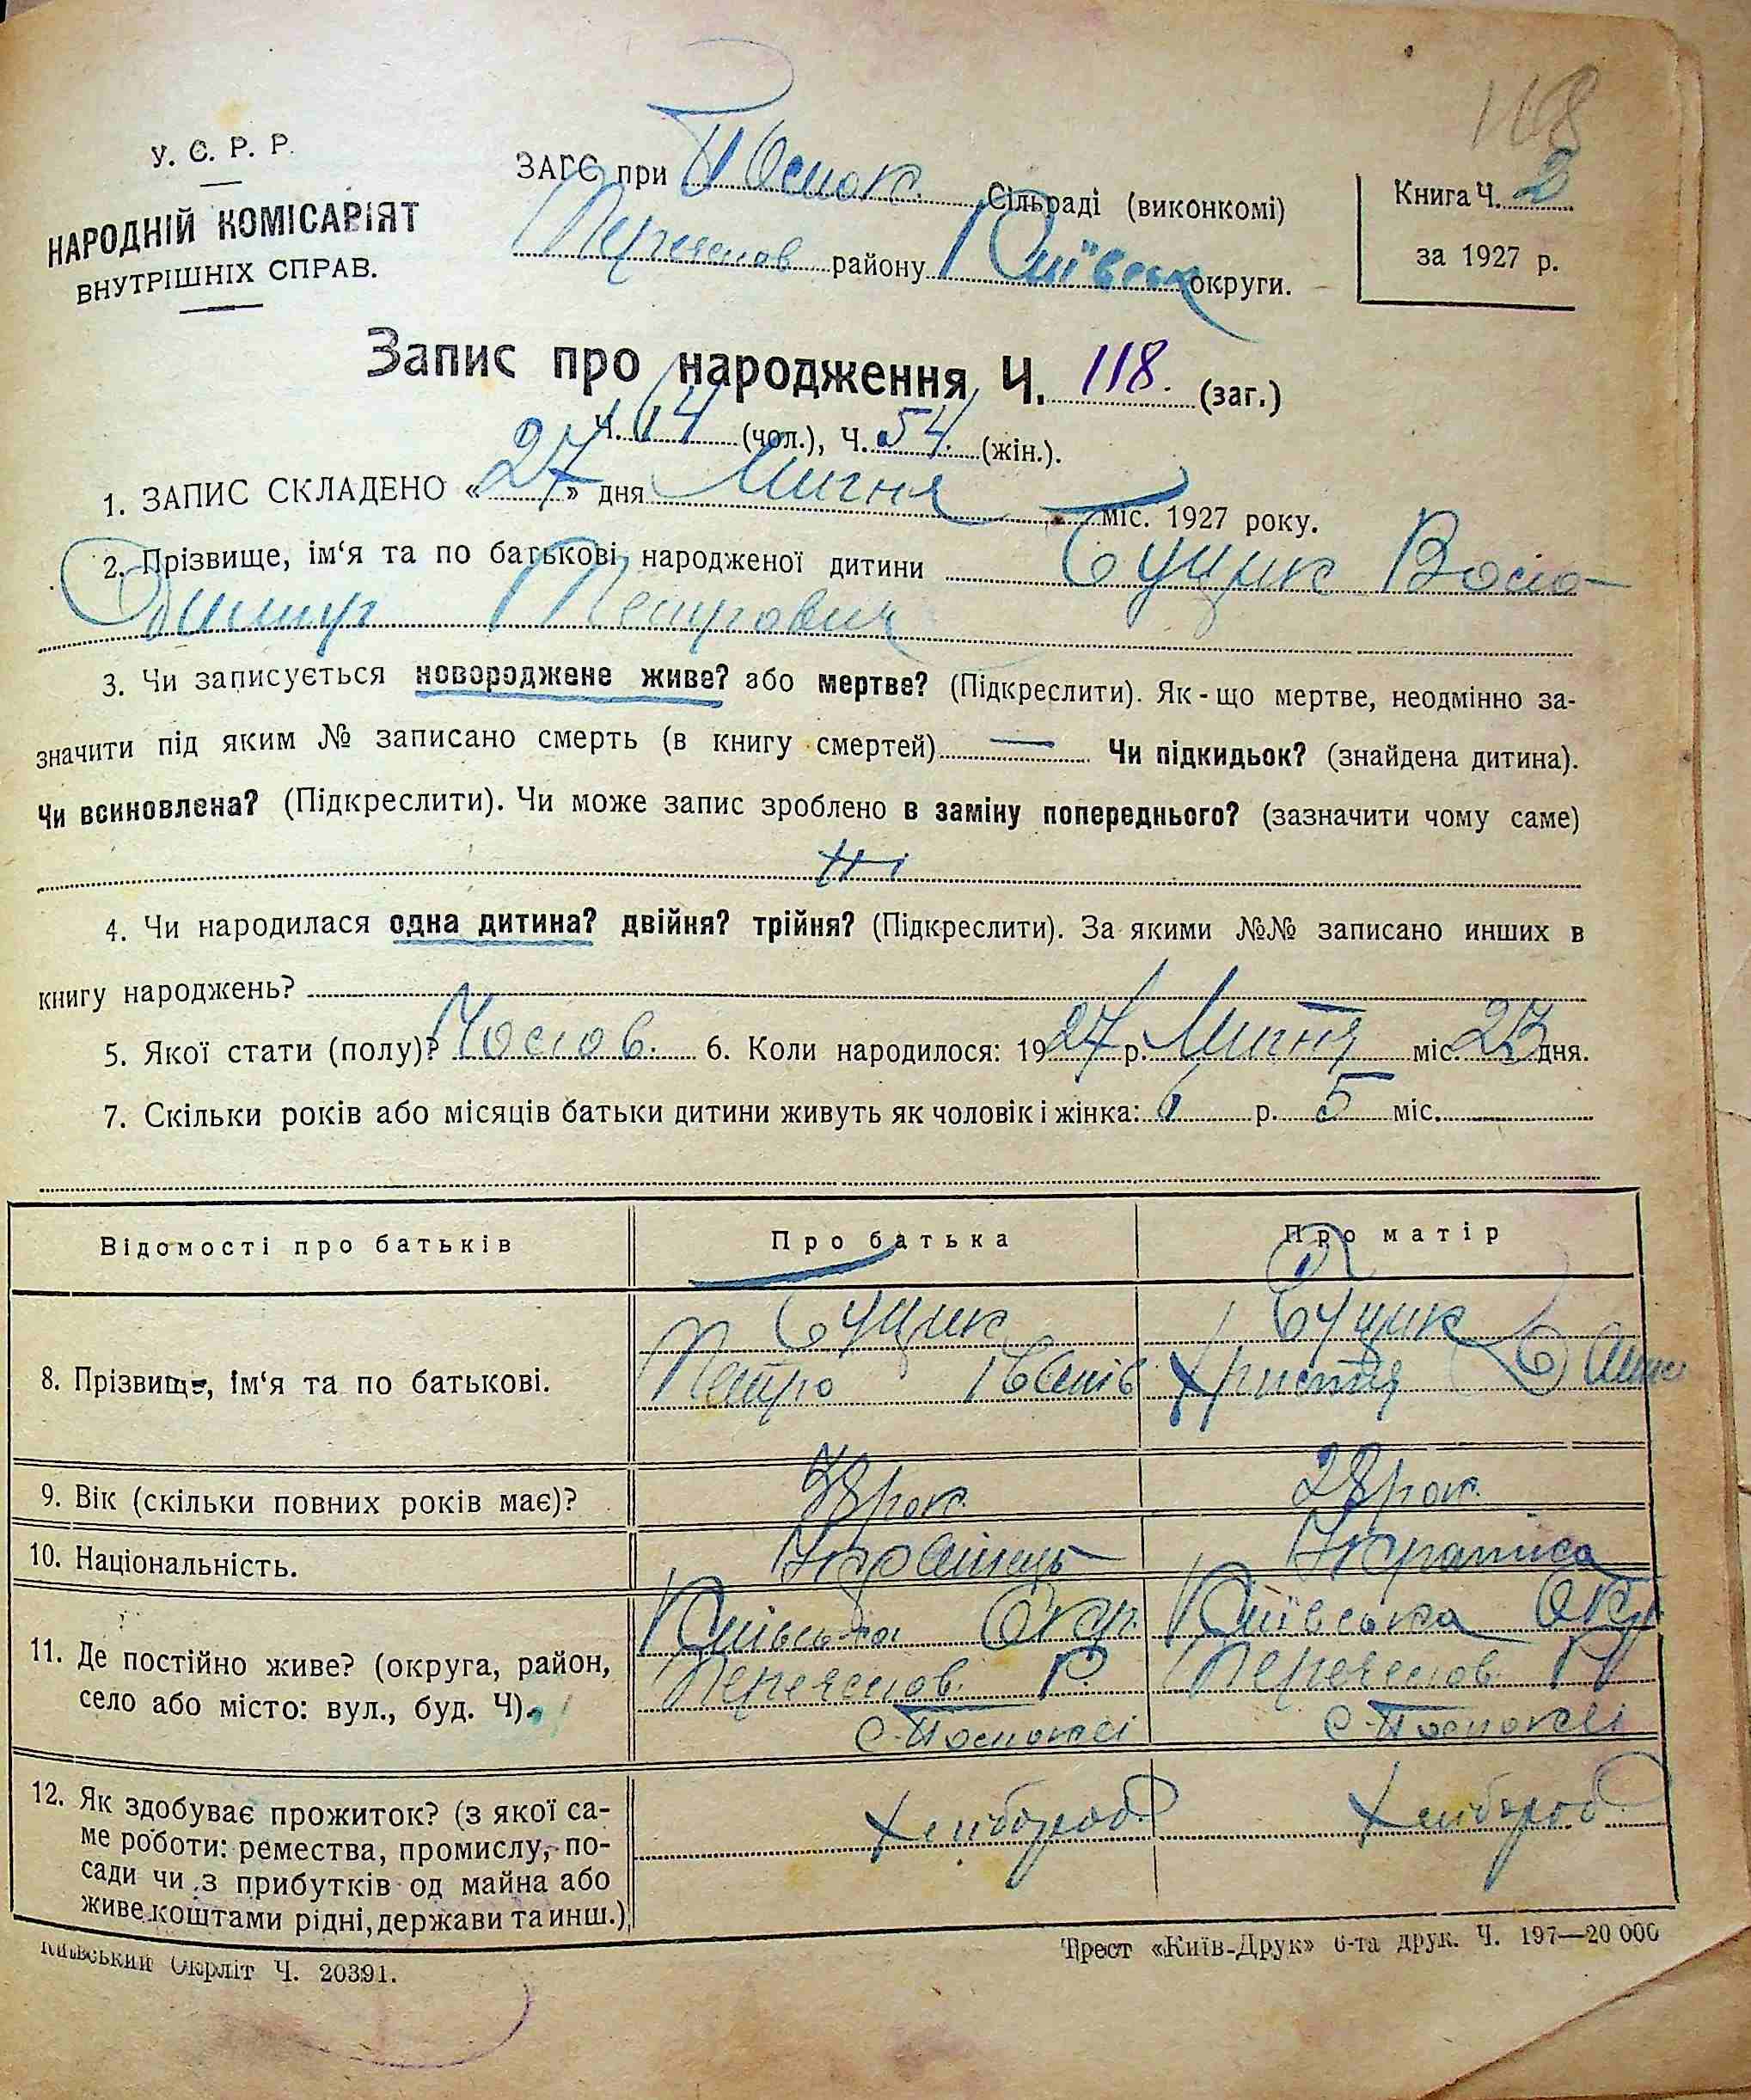 118
У. С. Р. Р.
НАРОДНІЙ КОМІСАРІЯТ
ВНУТРІШНІХ СПРАВ.
ЗАГС при Сільраді (виконкомі)
району Київськ округи.
Книга Ч. 2
за 1927 р.
Запис про народження Ч. 118. (заг.)
Ч. 64 (чол.), Ч. 54. (жін.).
1. ЗАПИС СКЛАДЕНО « 27 » дня Липня міс. 1927 року.
2. Прізвище, ім‘я та по батькові народженої дитини Сущик Воло-
димир Петрович
3. Чи записується новороджене живе? або мертве? (Підкреслити). Як - що мертве, неодмінно за-
значити під яким № записано смерть (в книгу смертей) — Чи підкидьок? (знайдена дитина).
Чи всиновлена? (Підкреслити). Чи може запис зроблено в заміну попереднього? (зазначити чому саме)
Ні
4. Чи народилася одна дитина? двійня? трійня? (Підкреслити). За якими №№ записано инших в
книгу народжень?
5. Якої стати (полу)? Чолов. 6. Коли народилося: 1927 р. Липня міс. 23 дня.
7. Скільки років або місяців батьки дитини живуть як чоловік і жінка: 6 р. 5 міс.
Відомості про батьків
Про батька
Про матір
8. Прізвище, ім‘я та по батькові.
Сущик
Петро Іванів
Сущик
Христя
9. Вік (скільки повних років має)?
рок.
28 рок.
10. Національність.
Українець
Українка
11. Де постійно живе? (округа, район,
село або місто: вул., буд. Ч).
Київська Окр.
Переяслов. Р.
Київська Окр.
Переяслов. Р.
12. Як здобуває прожиток? (з якої са-
ме роботи: ремества, промислу, по-
сади чи з прибутків од майна або
живе коштами рідні, держави та инш.)
Хлібороб
Хлібороб
Київський Окрліт Ч. 20391.
Трест «Київ-Друк» 6-та друк. Ч. 197—20 000